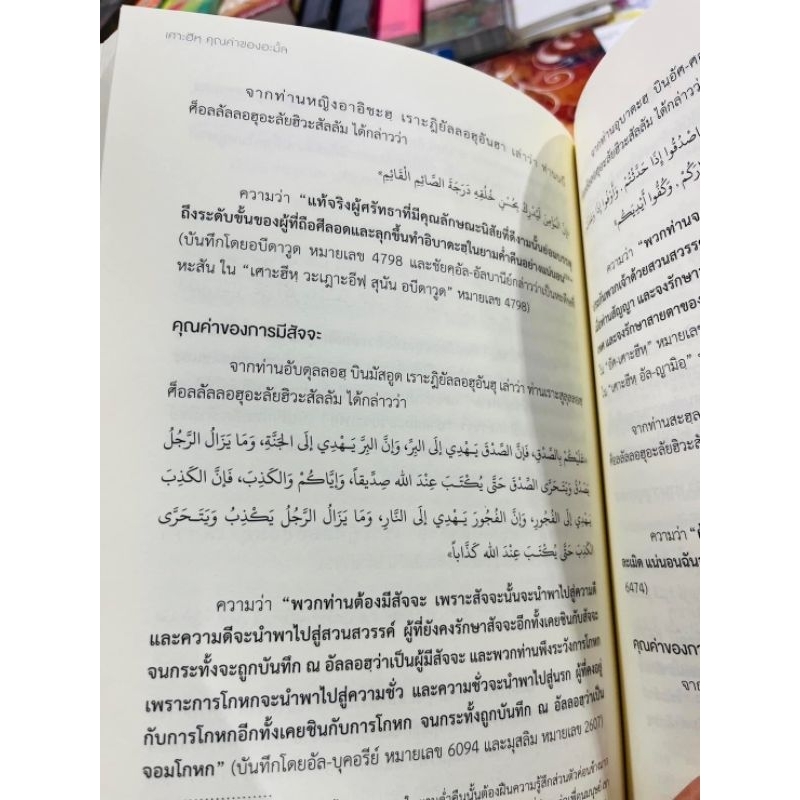 เศาะฮีหฺ คุณค่าของอะมัล
จากท่านหญิงอาอิชะฮฺ เราะฎิยัลลอฮุอันฮา เล่าว่า ท่านนบี
ศ็อลลัลลอฮุอะลัยฮิวะสัลลัม ได้กล่าวว่า
إِنَّ الْمُؤْمِنَ لَيُدْرِكُ بِحُسْنِ خُلُقِهِ دَرَجَةَ الصَّائِمِ الْقَائِمِ»
ความว่า “แท้จริงผู้ศรัทธาที่มีคุณลักษณะนิสัยที่ดีงามนั้นย่อมบรรลุ
ถึงระดับขั้นของผู้ที่ถือศีลอดและลุกขึ้นทำอิบาดะฮฺในยามค่ำคืนอย่างแน่นอน”
(บันทึกโดยอบีดาวูด หมายเลข 4798 และชัยคฺอัล-อัลบานีย์กล่าวว่าเป็นหะดีษที่
หะสัน ใน “เศาะฮีหฺ วะเฎาะอีฟฺ สุนัน อบีดาวูด” หมายเลข 4798)
คุณค่าของการมีสัจจะ
จากท่านอับดุลลอฮฺ บินมัสอูด เราะฎิยัลลอฮุอันฮุ เล่าว่า ท่านเราะสูลุลลอฮฺ
ศ็อลลัลลอฮุอะลัยฮิวะสัลลัม ได้กล่าวว่า
«عَلَيْكُمْ بِالصِّدْقِ، فَإِنَّ الصِّدْقَ يَهْدِي إِلَى البِرِّ، وَإِنَّ البِرَّ يَهْدِي إِلَى الجَنَّةِ، وَمَا يَزَالُ الرَّجُلُ
يَصْدُقُ وَيَتَحَرَّى الصِّدْقَ حَتَّى يُكْتَبَ عِنْدَ الله صِدِّيقاً، وَإِيَّاكُمْ وَالكَذِبَ، فَإِنَّ الكَذِبَ
يَهْدِي إِلَى الفُجُورِ، وَإِنَّ الفُجُورَ يَهْدِي إِلَى النَّارِ، وَمَا يَزَالُ الرَّجُلُ يَكْذِبُ وَيَتَحَرَّى
الكَذِبَ حَتَّى يُكْتَبَ عِنْدَ الله كَذَّاباً»
ความว่า “พวกท่านต้องมีสัจจะ เพราะสัจจะนั้นจะนำพาไปสู่ความดี
และความดีจะนำพาไปสู่สวนสวรรค์ ผู้ที่ยังคงรักษาสัจจะอีกทั้งเคยชินกับสัจจะ
จนกระทั้งจะถูกบันทึก ณ อัลลอฮฺว่าเป็นผู้มีสัจจะ และพวกท่านพึงระวังการโกหก
เพราะการโกหกจะนำพาไปสู่ความชั่ว และความชั่วจะนำพาไปสู่นรก ผู้ที่คงอยู่
กับการโกหกอีกทั้งเคยชินกับการโกหก จนกระทั้งถูกบันทึก ณ อัลลอฮฺว่าเป็น
จอมโกหก” (บันทึกโดยอัล-บุคอรีย์ หมายเลข 6094 และมุสลิม หมายเลข 2607)
ค่ำคืนนั้นต้องฝืนความรู้สึกส่วนตัวค่อนข้างมาก
จากท่านอุบาดะฮฺ บินอัศ-
ศ็อลลัลลอฮุอะลัยฮิวะสัลลัม ได้กล่าวว่า
اصْدُقُوا إِذَا حَدَّثْتُمْ، وَأَوْفُوا إِذَا
وَكُفُّوا أَيْدِيَكُمْ»
ความว่า “พวกท่านจ
และจงรักษาสายตาของ
ใน “อัศ-เศาะฮีหฺ” หมายเ
ใน “เศาะฮีหฺ อัล-ญามิอฺ”
จากท่านสะฮฺล
ศ็อลลัลลอฮุอะลัยฮิวะสัลลัม
ความว่า
ละเมิด แน่นอนฉัน
6474)
คุณค่าของกา
จา